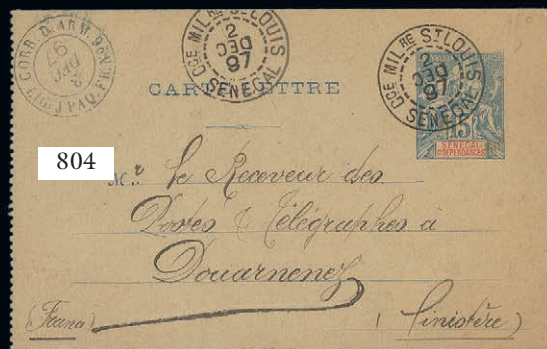 CORR. D. ARM. LIG. J PAQ. FR.
97
DEC
Cce MILre ST LOUIS
2
DEC
97
SENEGAL
Cce MILre ST LOUIS
2
DEC
97
SENEGAL
CARTE-LETTRE
15
SENEGAL
ET DEPENDANCES
804
M.r Le Receveur des
Postes & Télégraphes à
Douarnenez
(France)
(Finistère)